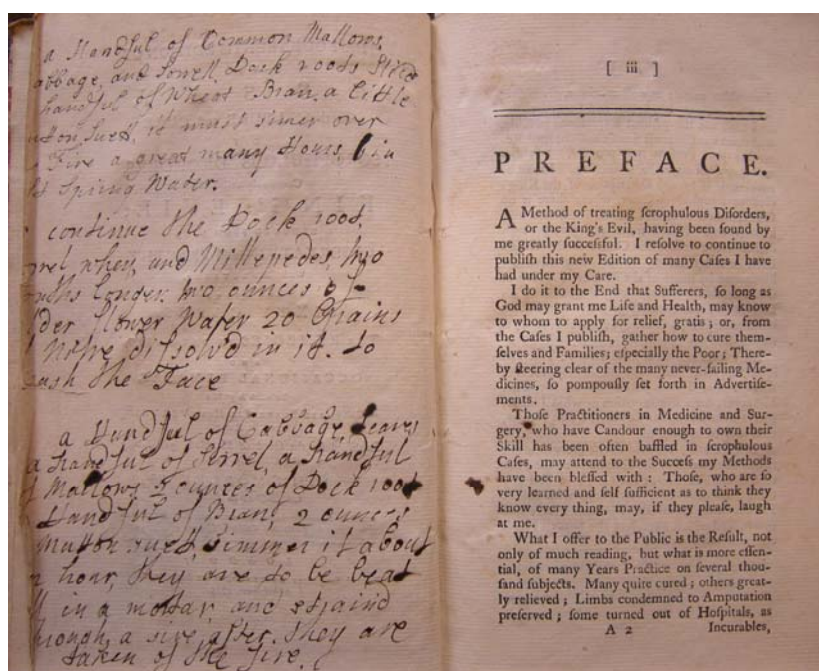 a Handful of Common Mallows,
and Sorrell, Dock roots Sliced
handful of Wheat Bran, a little
Suet, it must simer over
Fire a great many Hours, in
Spring Water.
continue the Dock root,
whey, and Millepedes, two
longer, two ounces of
flower Water 20 Grains
Nitre dissolv'd in it. to
the Face
a Handful of Cabbage Leaves
a handful of Sorrel, a handful
Mallows 5 ounces of Dock root
Handful of Bran, 2 ounces
Mutton suet, Simmer it about
hour, they are to be beat
in a mortar, and straind
a sive after they are
taken of the fire.
[ iii ]
PREFACE.
A Method of treating ſcrophulous Diſorders,
or the King's Evil, having been found by
me greatly ſucceſsful. I reſolve to continue to
publiſh this new Edition of many Caſes I have
had under my Care.
I do it to the End that Sufferers, ſo long as
God may grant me Life and Health, may know
to whom to apply for relief, gratis; or, from
the Caſes I publiſh, gather how to cure them-
ſelves and Families; eſpecially the Poor; There-
by ſteering clear of the many never-failing Me-
dicines, ſo pompouſly ſet forth in Advertiſe-
ments.
Thoſe Practitioners in Medicine and Sur-
gery, who have Candour enough to own their
Skill has been often baffled in ſcrophulous
Caſes, may attend to the Succeſs my Methods
have been bleſſed with: Thoſe, who are ſo
very learned and ſelf ſufficient as to think they
know every thing, may, if they pleaſe, laugh
at me.
What I offer to the Public is the Reſult, not
only of much reading, but what is more eſſen-
tial, of many Years Practice on ſeveral thou-
ſand ſubjects. Many quite cured; others great-
ly relieved; Limbs condemned to Amputation
preſerved; ſome turned out of Hoſpitals, as
A 2 Incurables,